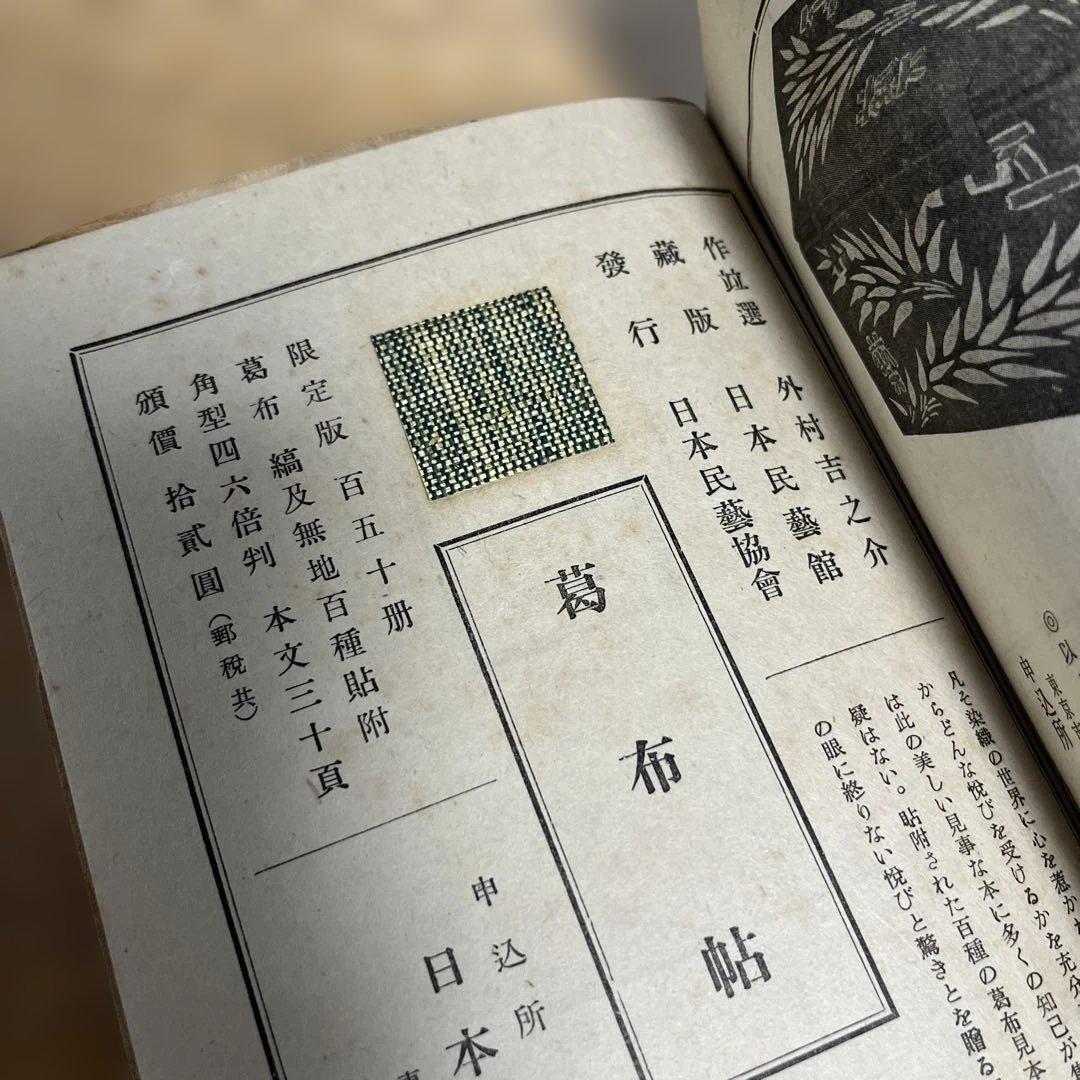 ◎以
申込所
東京市
作竝選 外村吉之介
藏版 日本民藝館
發行 日本民藝協會
凡そ染織の世界に心を惹か
からどんな悅びを受けるかを充分
は此の美しい見事な本に多くの知己が
疑はない。貼附された百種の葛布見本
の眼に終りない悅びと驚きとを贈る
葛布帖
限定版 百五十册
葛布 縞及無地百種貼附
角型四六倍判 本文三十頁
頒價 拾貳圓(郵稅共)
申込所
日本